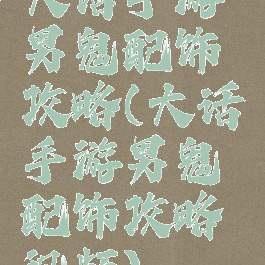 大话手游
男鬼配饰
攻略(大话
手游男鬼
配饰攻略
视频)